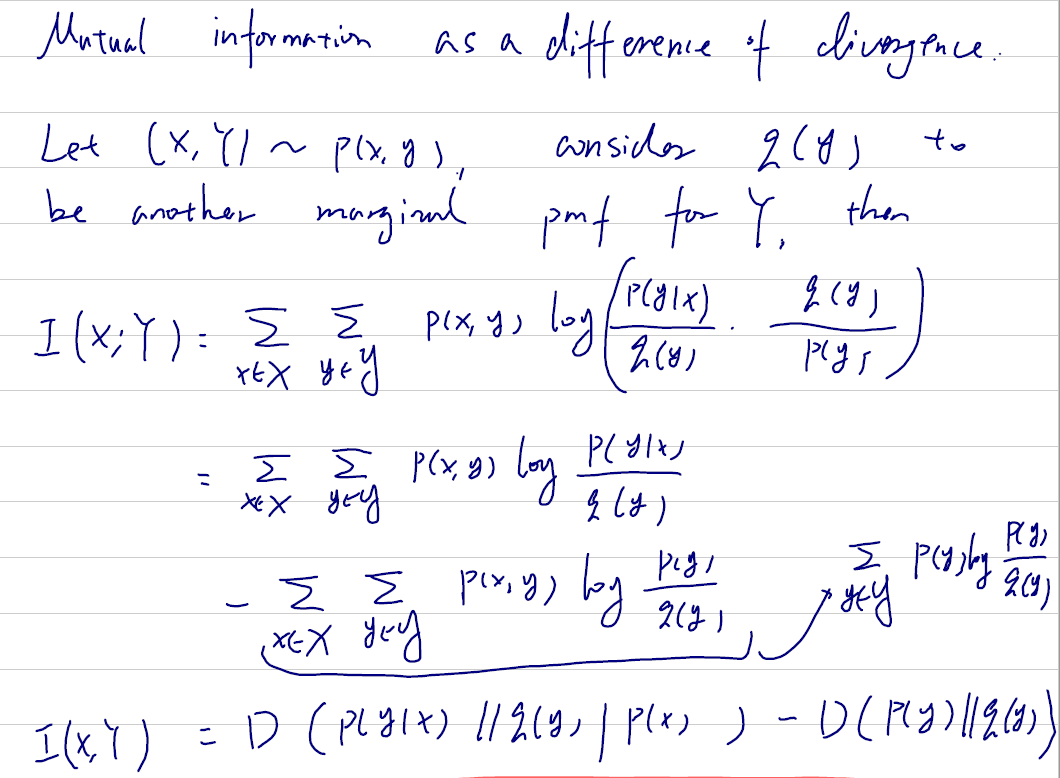 Mutual information as a difference of divergence.
Let (X, Y) ~ p(x, y), consider q(y) to
be another marginal pmf for Y, then
I(X; Y) = Σ_{x∈X} Σ_{y∈Y} p(x, y) log( p(y|x) / q(y) · q(y) / p(y) )
= Σ_{x∈X} Σ_{y∈Y} p(x, y) log p(y|x) / q(y)
- Σ_{x∈X} Σ_{y∈Y} p(x, y) log p(y) / q(y) Σ_{y∈Y} p(y) log p(y) / q(y)
I(X, Y) = D ( p(y|x) || q(y) | p(x) ) - D( p(y) || q(y) )